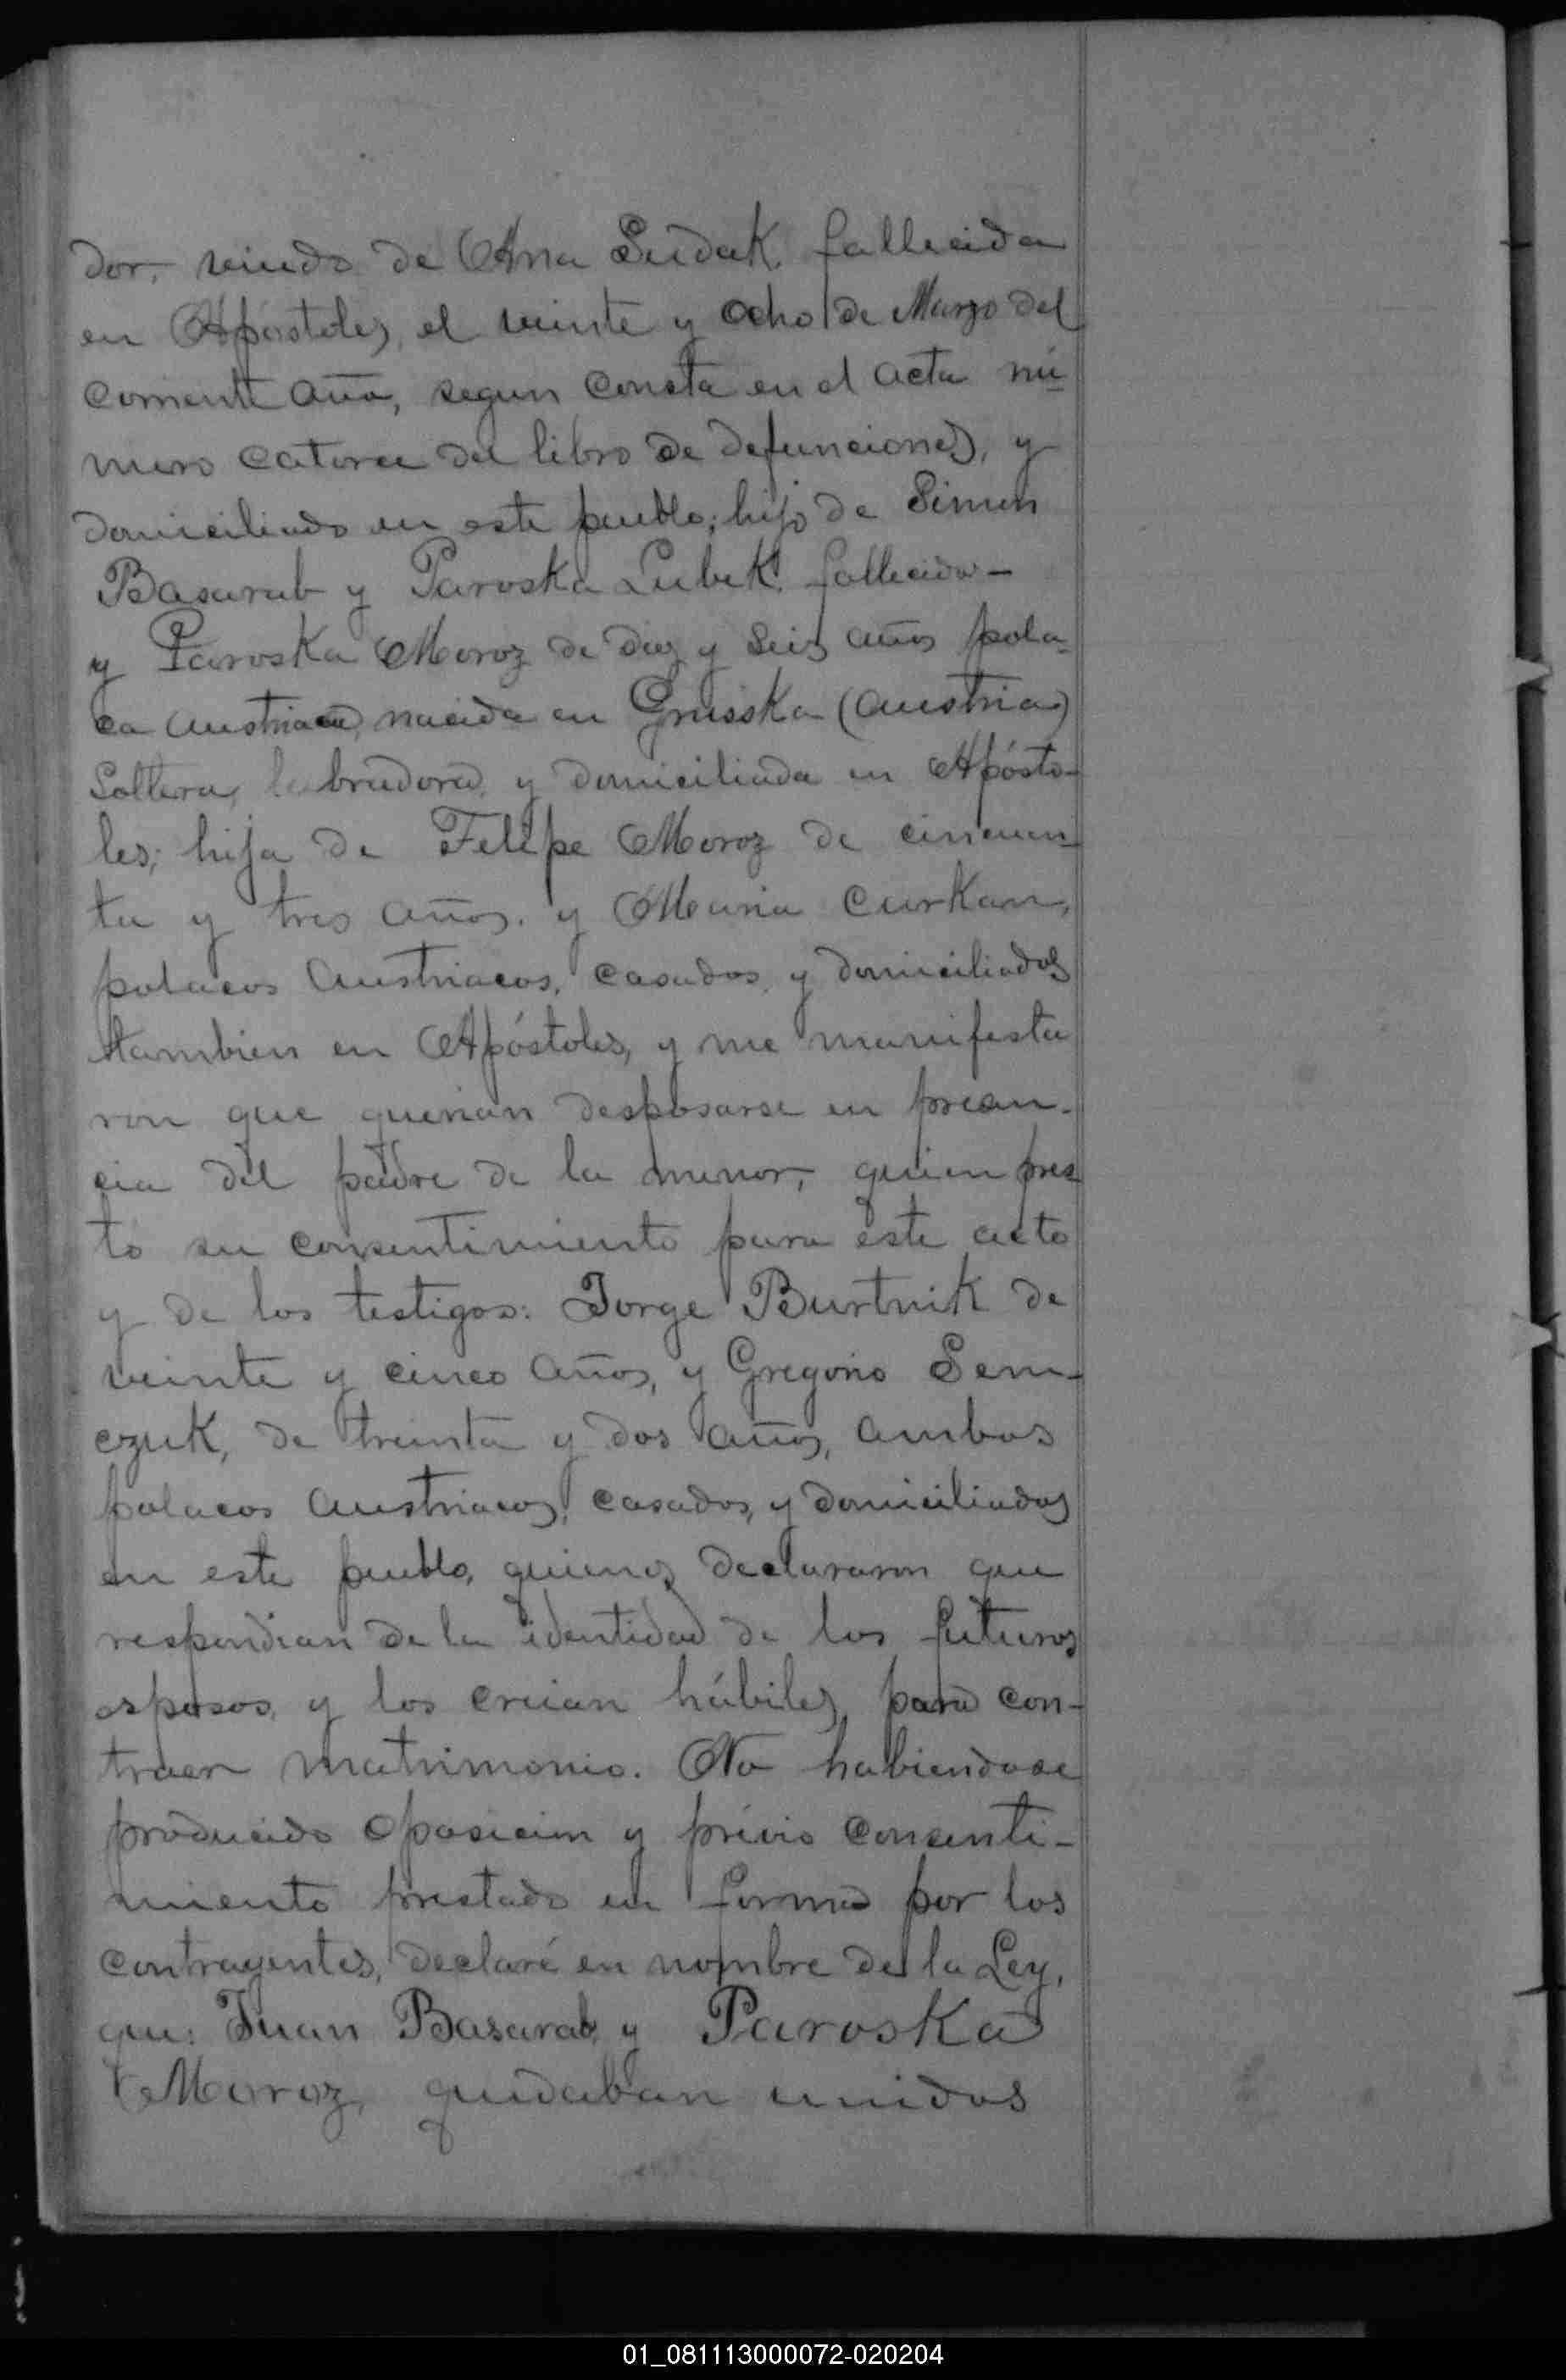 dor, viudo de Ana Sudak, fallecida
en Apóstoles, el veinte y ocho de Marzo del
corriente año, segun consta en el acta nú
mero catorce del libro de defunciones, y
domiciliado en este pueblo; hijo de Simon
Basarab y Paroska Lubek, fallecidos-
y Paroska Moroz de diez y seis años pola-
ca austriaca, nacida en Grusska (Austria)
soltera, labradora, y domiciliada en Apósto-
les; hija de Felipe Moroz de cincuen
ta y tres años, y Maria Curkan,
polacos austriacos, casados, y domiciliados
tambien en Apóstoles, y me manifesta
ron que querian desposarse en presen-
cia del padre de la menor, quien pres
tó su consentimiento para este acto
y de los testigos: Jorge Burtnik de
veinte y cinco años, y Gregorio Sem-
czuk, de treinta y dos años, ambos
polacos austriacos, casados, y domiciliados
en este pueblo, quienes declararon que
respondian de la identidad de los futuros
esposos, y los creian hábiles para con-
traer matrimonio. No habiendose
producido oposicion y prévio consenti-
miento prestado en forma por los
contrayentes, declaré en nombre de la Ley,
que: Juan Basarab y Paroska
Moroz, quedaban unidos
01_081113000072-020204